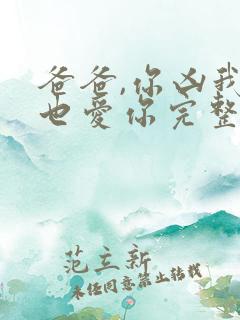 爸爸,你凶我
也爱你完整
范立新
未经同意禁止转载